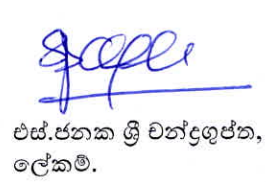 එස්.ජනක ශ්‍රී චන්ද්‍රගුප්ත,
ලේකම්.